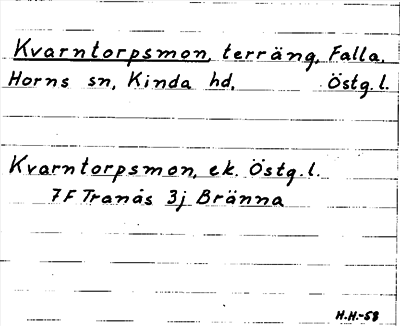 Kvarntorpsmon, terräng, Falla.
Horns sn, Kinda hd, Östg. l.
Kvarntorpsmon, ek. Östg. l.
7F Tranås 3j Bränna
H.H.-58